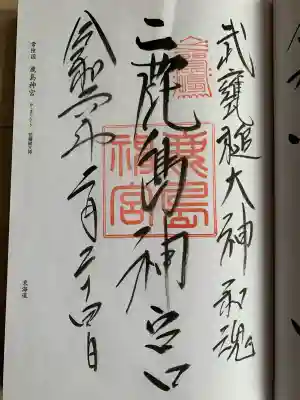 武甕槌大神和魂
二鹿島神宮
鹿島神宮
令和六年二月二十四日
常陸国 鹿島神宮
東海道